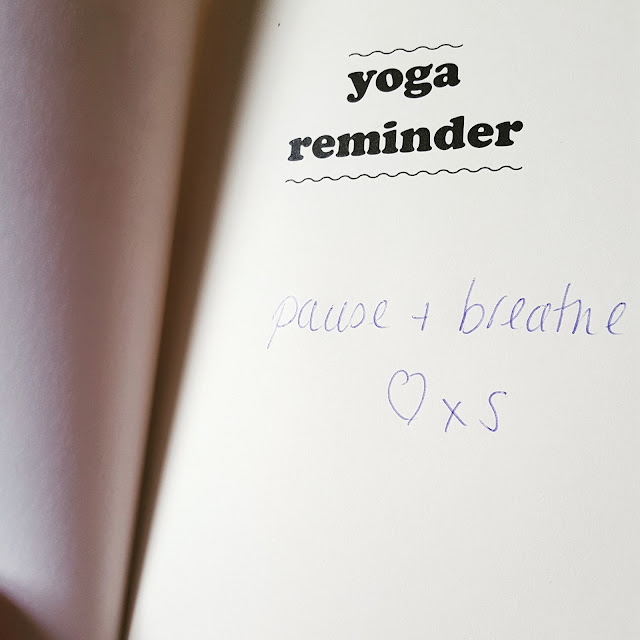 yoga
reminder
pause + breathe
♡ x S